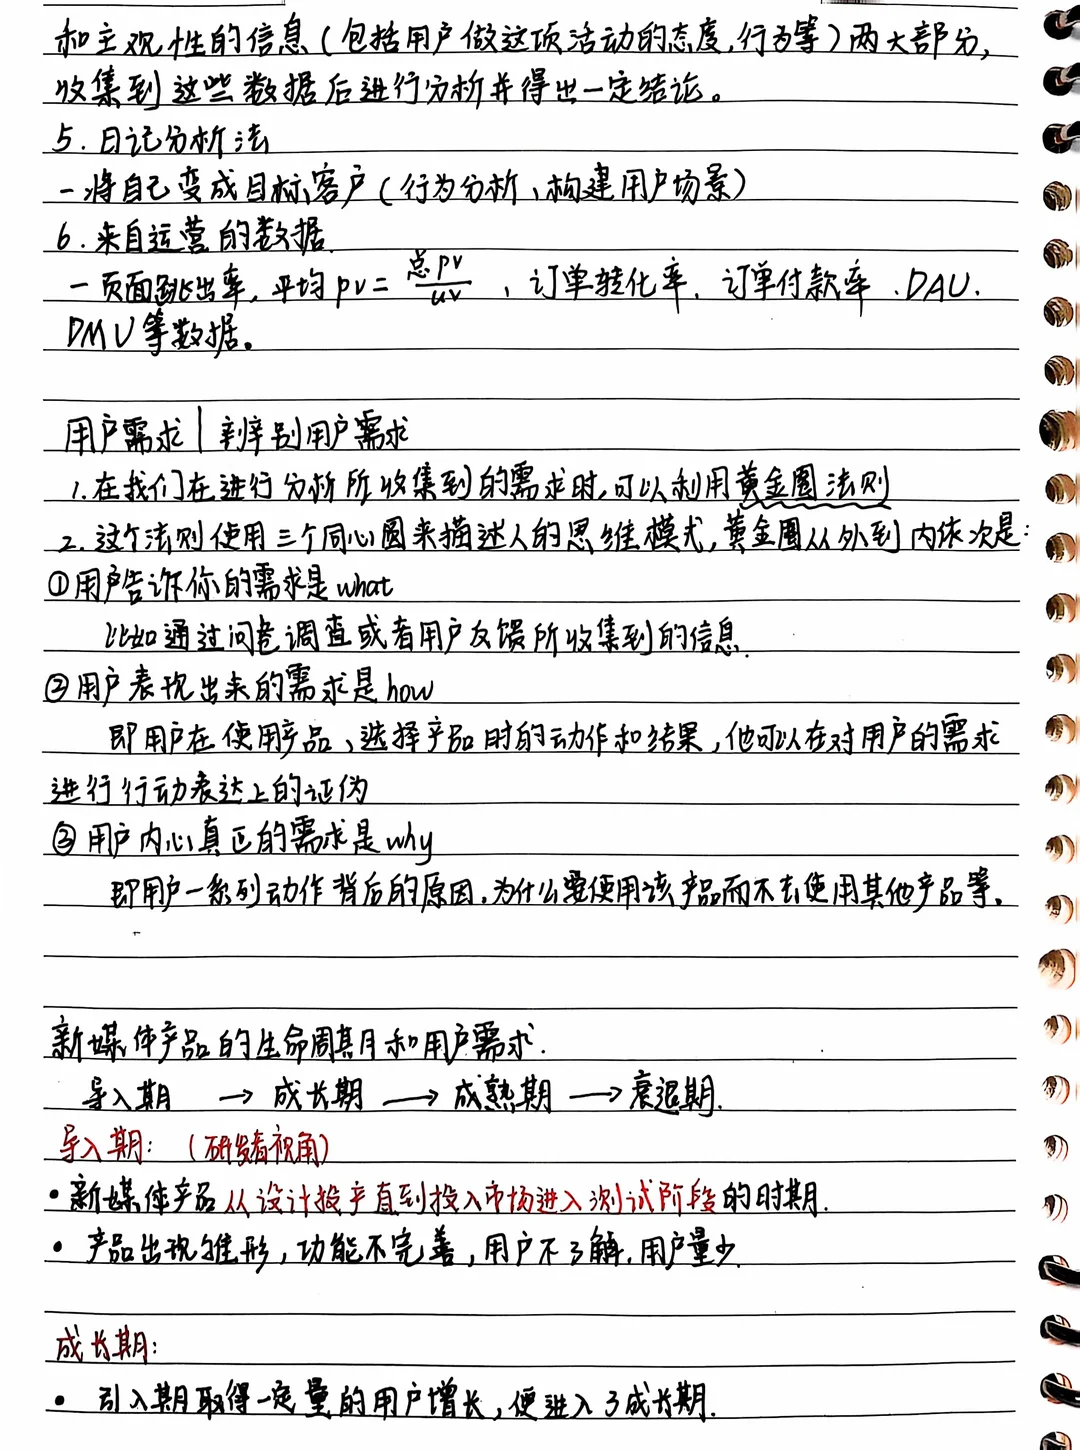 和主观性的信息(包括用户做这项活动的态度,行为等)两大部分,
收集到这些数据后进行分析并得出一定结论。
5.日记分析法
一将自己变成目标客户(行为分析、构建用户场景)
6.来自运营的数据.
一页面跳出率,平均pv=总pv/uv、订单转化率、订单付款率、DAU.
DMU等数据。
用户需求|辨别用户需求
1.在我们在进行分析所收集到的需求时,可以利用黄金圈法则
2.这个法则使用三个同心圆来描述人的思维模式,黄金圈从外到内依次是:
①用户告诉你的需求是what
比如通过问卷调查或者用户反馈所收集到的信息.
②用户表现出来的需求是how
即用户在使用产品、选择产品时的动作和结果,他可以在对用户的需求
进行行动表达上的证伪
③用户内心真正的需求是why
即用户一系列动作背后的原因.为什么要使用该产品而不去使用其他产品等。
新媒体产品的生命周期和用户需求.
导入期 → 成长期 → 成熟期 → 衰退期.
导入期:(研发者视角)
•新媒体产品从设计投产直到投入市场进入测试阶段的时期.
• 产品出现雏形,功能不完善,用户不了解.用户量少.
成长期:
• 引入期取得一定量的用户增长,便进入了成长期.